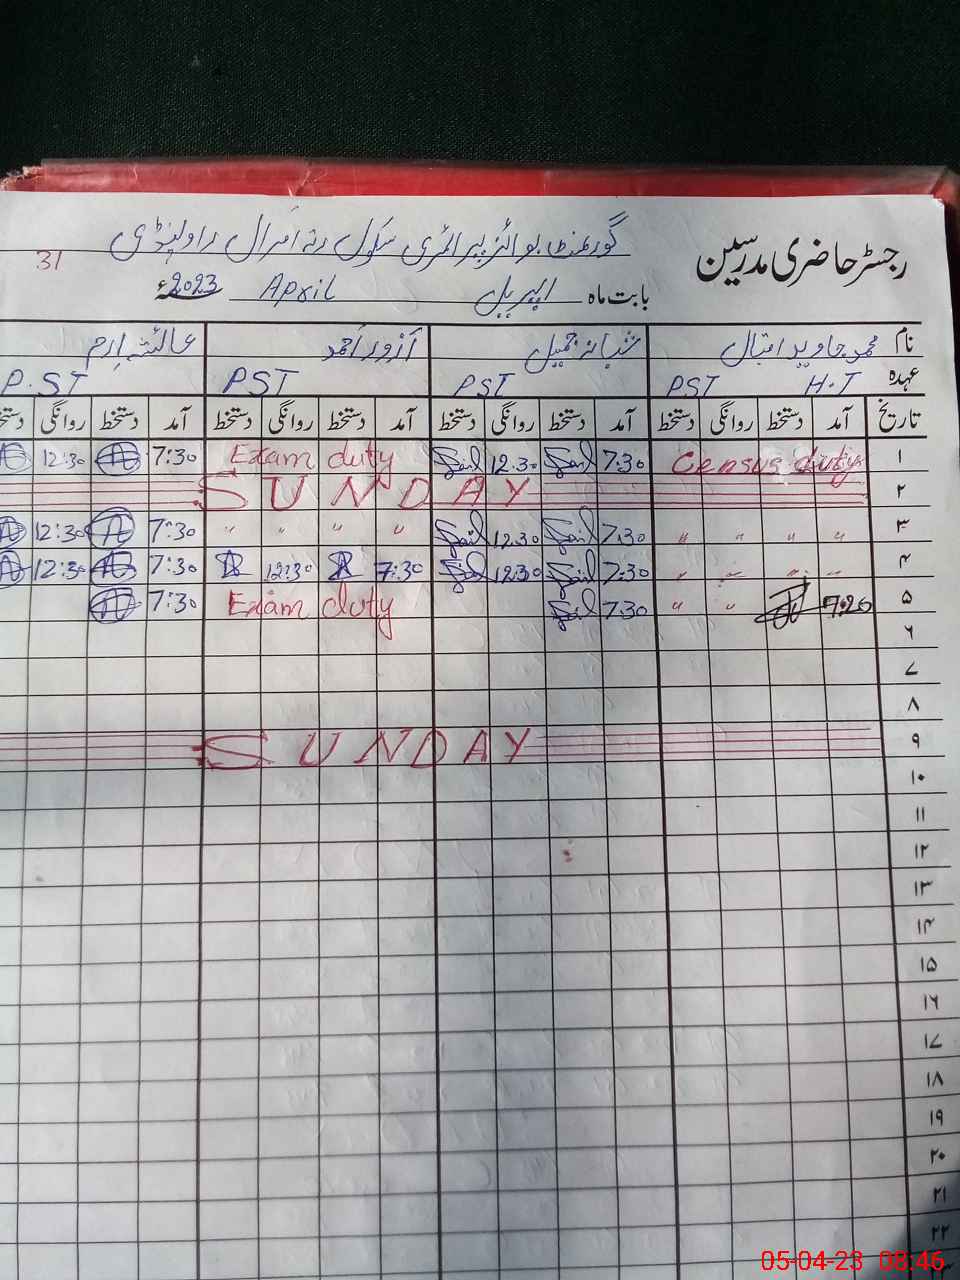 رجسٹر حاضری مدرسین
گورنمنٹ بوائز پرائمری سکول رتہ امرال راولپنڈی
31
بابت ماہ اپریل April 2023ء
نام محمد جاوید اقبال شبانہ جمیل آزور احمد عائشہ ارم
عہدہ H.T PST PST PST P.ST
تاریخ آمد دستخط روانگی دستخط آمد دستخط روانگی دستخط آمد دستخط روانگی دستخط آمد دستخط روانگی دستخط
۱ Census duty 7:30 12:30 Exam duty 7:30 12:30
۲ SUNDAY
۳ " " " " 7:30 12:30 " " " " 7:30 12:30
۴ " " " " 7:30 12:30 7:30 12:30 7:30 12:30
۵ 7:20 " " 7:30 Exam duty 7:30
۶
۷
۸
۹ SUNDAY
۱۰
۱۱
۱۲
۱۳
۱۴
۱۵
۱۶
۱۷
۱۸
۱۹
۲۰
۲۱
۲۲
05-04-23 08:46